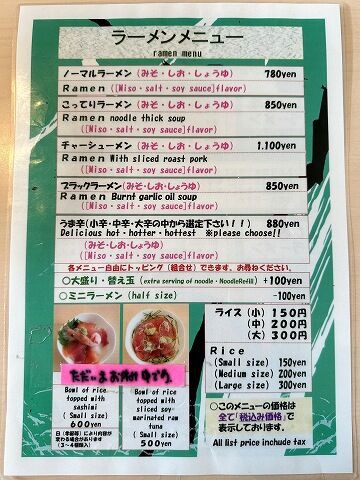 ラーメンメニュー
ramen menu
ノーマルラーメン (みそ・しお・しょうゆ) 780yen
Ramen ([Miso・salt・soy sauce]flavor)
こってりラーメン (みそ・しお・しょうゆ) 850yen
Ramen noodle thick soup
([Miso・salt・soy sauce]flavor)
チャーシューメン (みそ・しお・しょうゆ) 1.100yen
Ramen With sliced roast pork
([Miso・salt・soy sauce]flavor)
ブラックラーメン(みそ・しお・しょうゆ) 850yen
Ramen Burnt garlic oil soup
([Miso・salt・soy sauce]flavor)
うま辛(小辛・中辛・大辛の中から選定下さい!!) 880yen
Delicious hot・hotter・hottest ※please choose!!
(みそ・しお・しょうゆ)
([Miso・salt・soy sauce]flavor)
各メニュー自由にトッピング(組合せ)できます。お尋ねください。
○大盛り・替え玉 (extra serving of noodle・NoodleRefill) +100yen
○ミニラーメン (half size) -100yen
ライス (小) 150円
(中) 200円
(大) 300円
Rice
(Small size) 150yen
(Medium size) 200yen
(Large size) 300yen
ただいま お休み中です。
Bowl of rice
topped with
sashimi
(Small size)
600yen
日(季節等)により内容が
変わる場合があります
(3~4種類入)
Bowl of rice
topped with
sliced soy-
marinated raw
tuna
(Small size)
500yen
○このメニューの価格は
全て「税込み価格」で
表示しております.
All list price inchude tax